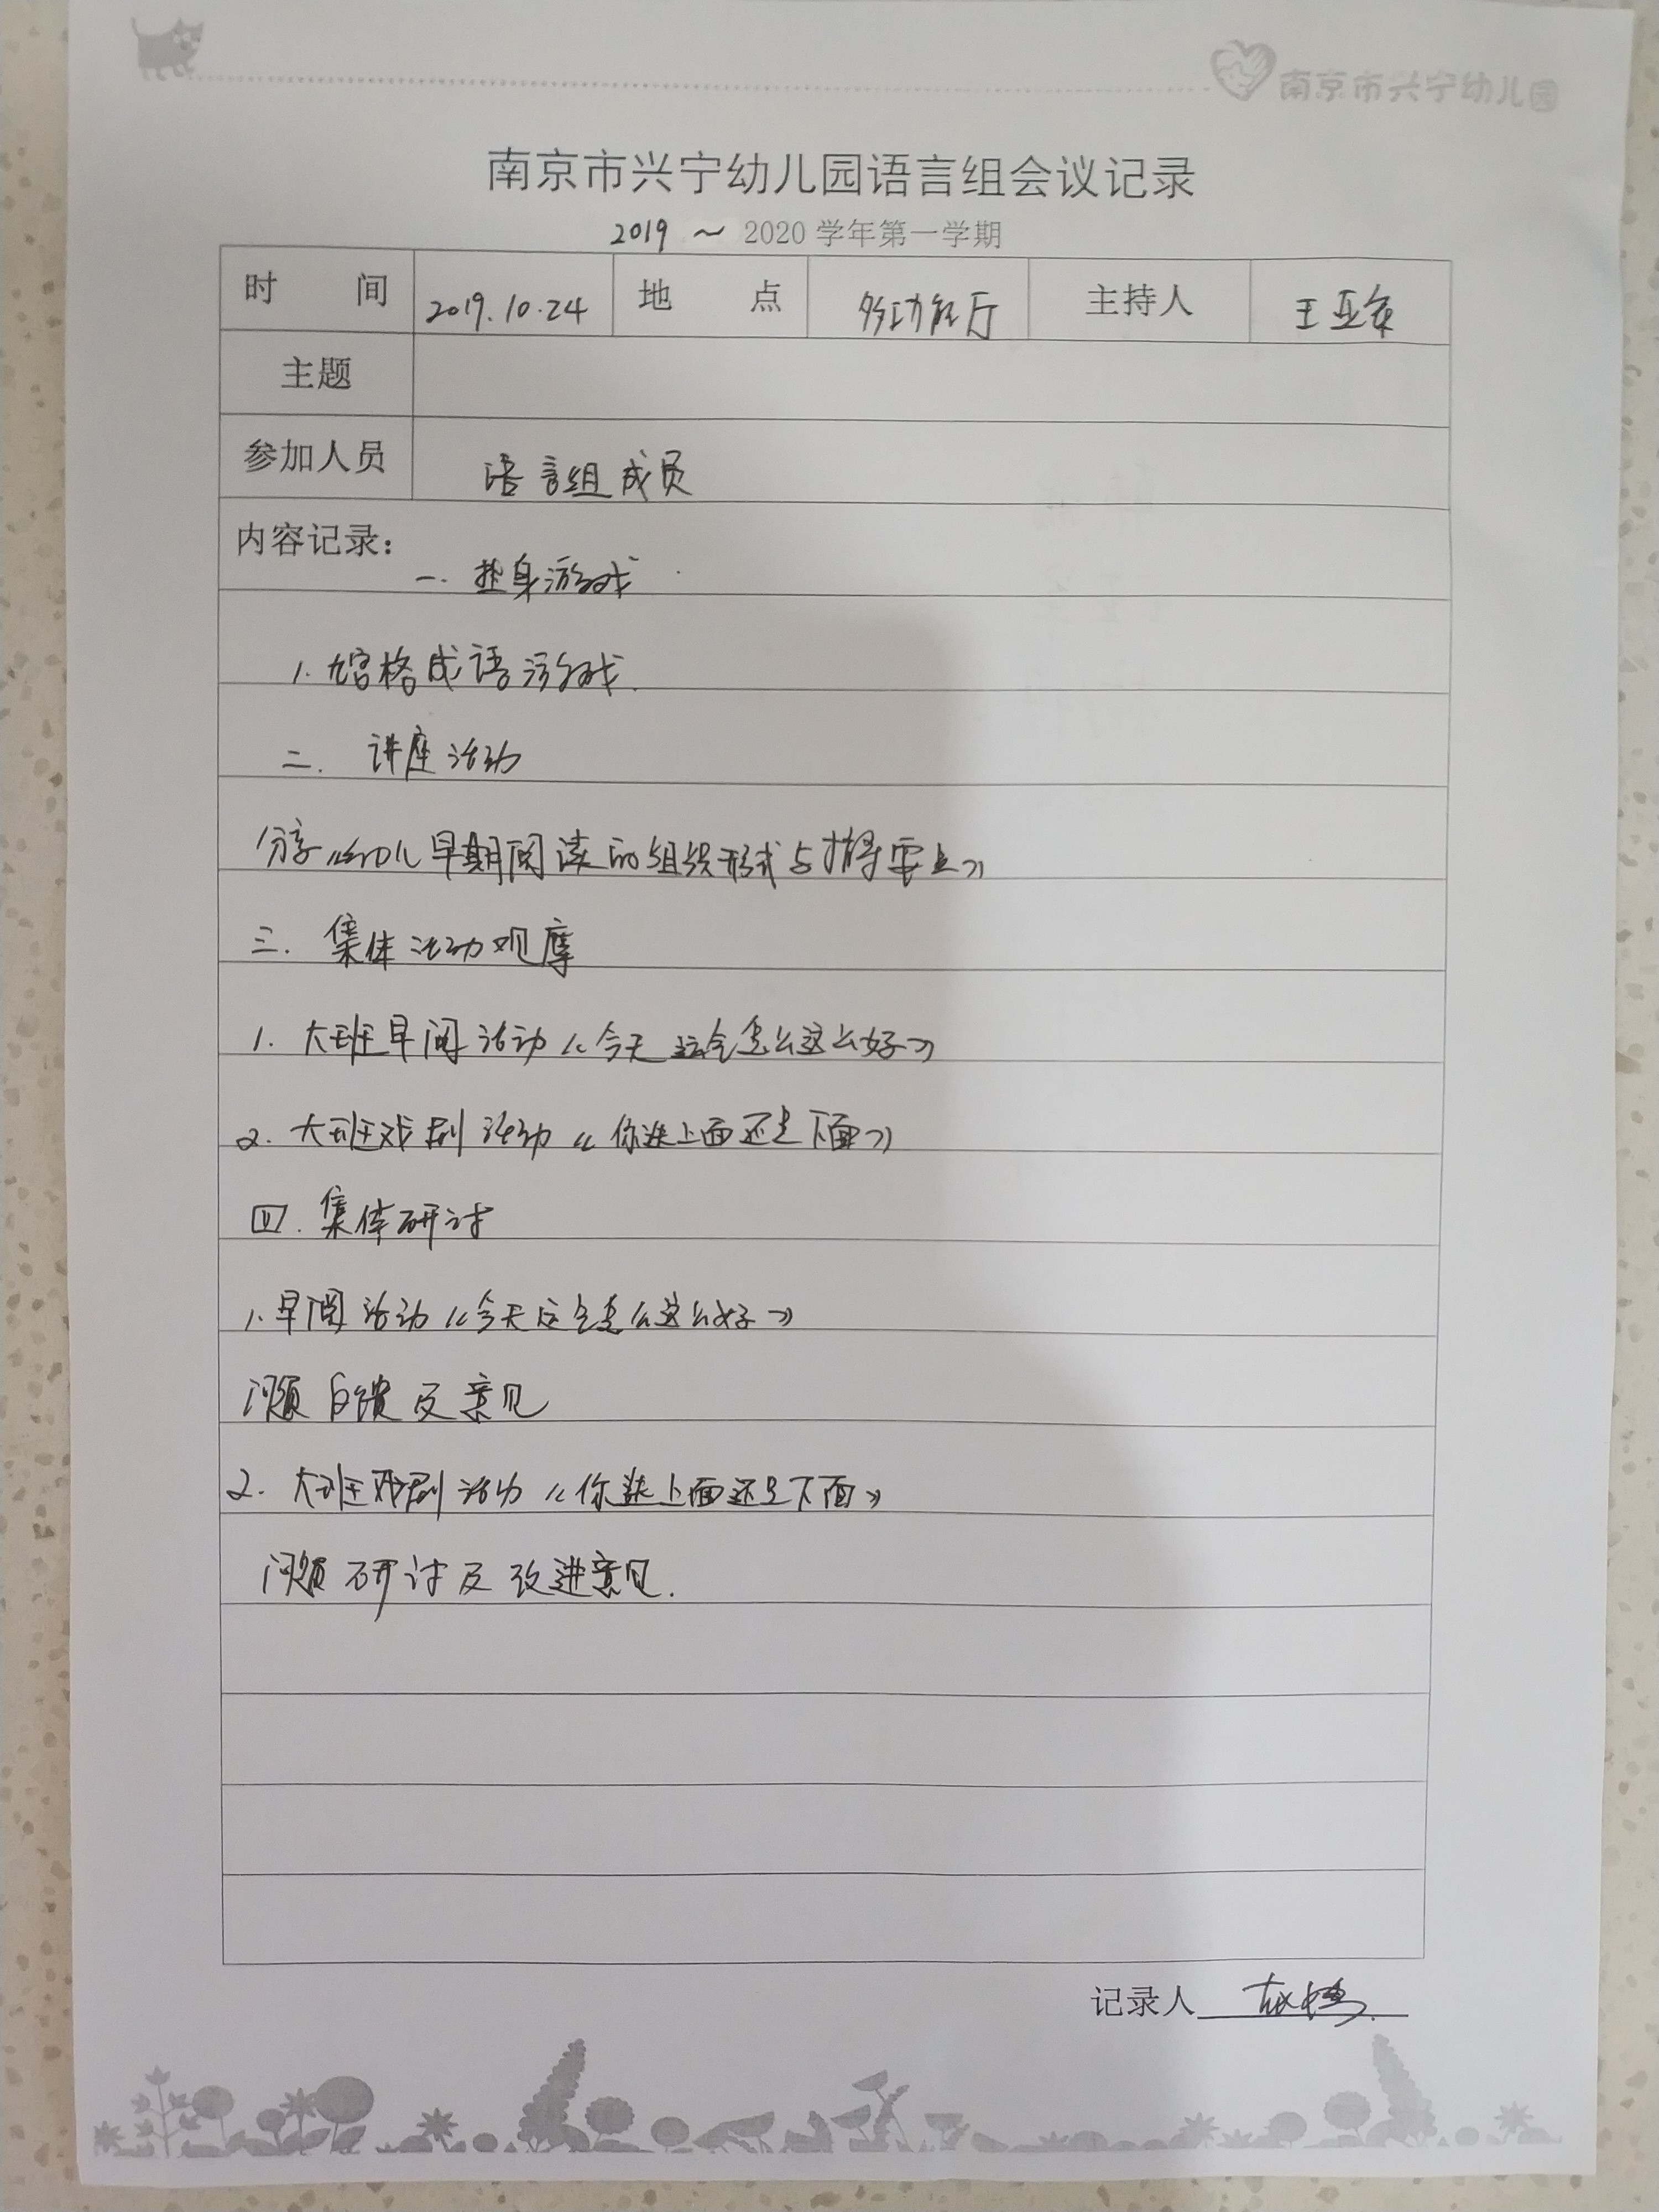 南京市兴宁幼儿园
南京市兴宁幼儿园语言组会议记录
2019 ～ 2020 学年第一学期
时 间 2019.10.24 地 点 多功能厅 主持人 王亚
主题
参加人员 语言组成员
内容记录：
一. 热身游戏
1. 九宫格成语游戏.
二. 讲座活动
分享《幼儿早期阅读的组织形式与指导要点》
三. 集体活动观摩
1. 大班早阅活动《今天运气怎么这么好》
2. 大班戏剧活动《你选上面还是下面》
四. 集体研讨
1. 早阅活动《今天运气怎么这么好》
问题 及意见
2. 大班戏剧活动《你选上面还是下面》
问题研讨及改进意见.
记录人